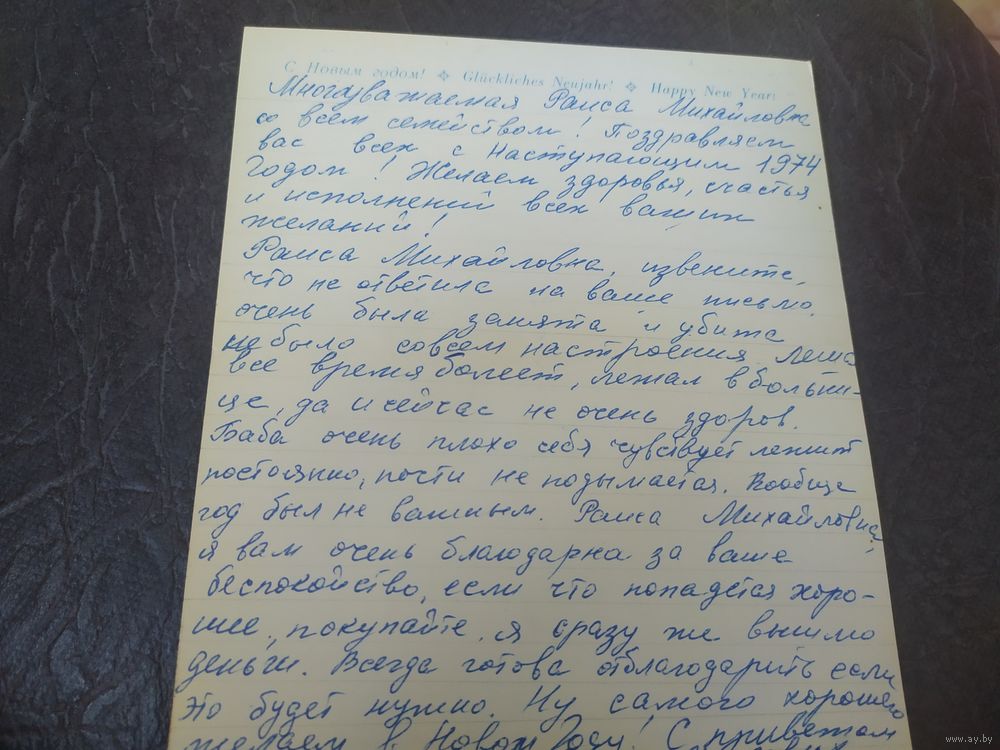 С Новым годом! ❖ Glückliches Neujahr! ❖ Happy New Year!
Многоуважаемая Раиса Михайловна
со всем семейством! Поздравляем
вас всех с наступающим 1974
Годом! Желаем здоровья, счастья
и исполнений всех ваших
желаний!
Раиса Михайловна, извените,
что не ответила на ваше письмо,
очень была занята и убита
не было совсем настроения Леша
все время болеет, лежал в больни-
це, да и сейчас не очень здоров.
Баба очень плохо себя чувствует лежит
постоянно, почти не подымается. Вообще
год был не важным. Раиса Михайловна,
я вам очень благодарна за ваше
беспокойство, если что попадется хоро-
шее, покупайте, я сразу же вышлю
деньги. Всегда готова отблагодарить если
это будет нужно. Ну самого хорошего
желаем в Новом Году! С приветом
www.ay.by